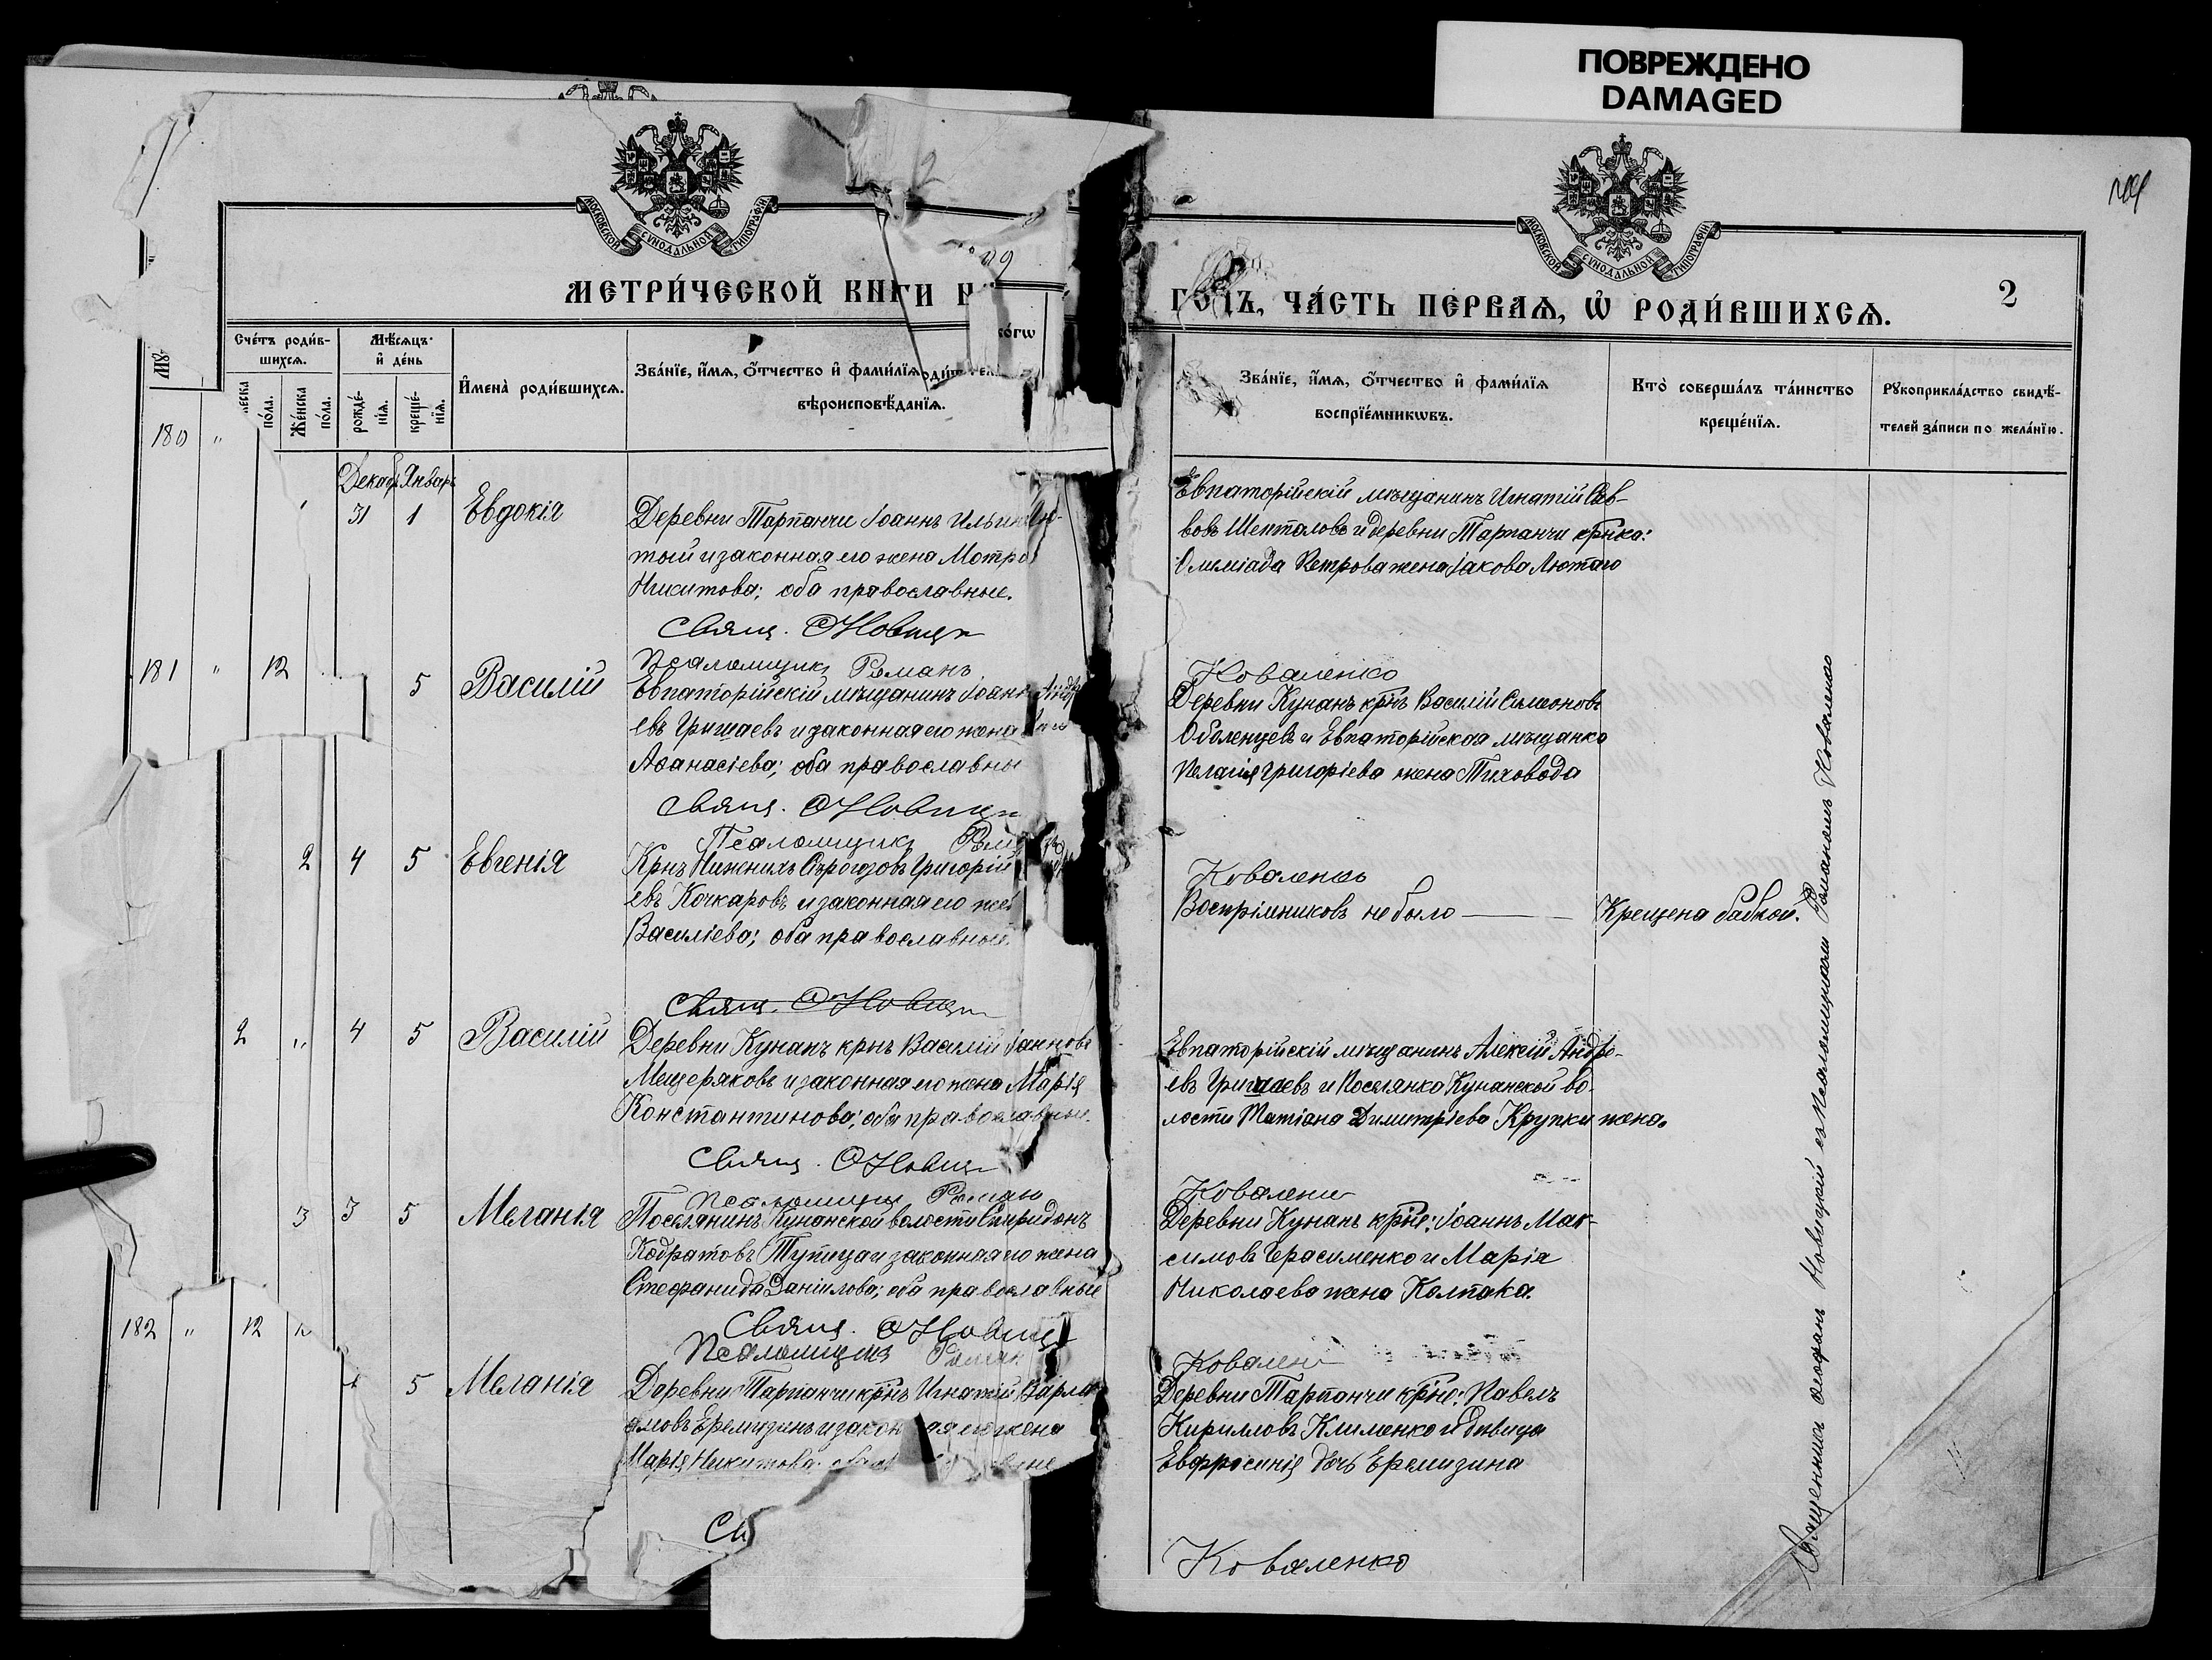 ПОВРЕЖДЕНО
DAMAGED
МОСКОВСКОЙ СѴНОДАЛЬНОЙ ТИПОГРАФІИ
МОСКОВСКОЙ СѴНОДАЛЬНОЙ ТИПОГРАФІИ
МЕТРИ́ЧЕСКОЙ КНИГИ Н
ГОДЪ, ЧА́СТЬ ПЕРВАѦ, Ѡ҆ РОДИ́ВШИХСѦ.
2
Сче́тъ роди́в-
шихсѧ.
Мѣ́сѧцъ
и҆ де́нь
И҆мена̀ роди́вшихсѧ.
Зва́нїе, и҆́мѧ, ѻ҆́тчество и҆ фами́лїѧ
вѣроисповѣ́данїѧ.
по́ла.
Же́нска
по́ла.
рожде́-
нїѧ.
креще́-
нїѧ.
Зва́нїе, и҆́мѧ, ѻ҆́тчество и҆ фами́лїѧ
воспрїе́мникѡвъ.
Кто̀ соверша́лъ та́инство
креще́нїѧ.
Рꙋкоприкла́дство свидѣ́-
телей за́писи по жела́нїю.
180 "
Декаб. Январь
31 1 Евдокія
Деревни Тарпанчи Іоаннъ
тый и законная его жена Мотро
Никитова; оба православные.
Свящ. Ѳ Новиц
Псаломщикъ Романъ
Евпаторійскій мѣщанинъ Игнатій Сав-
вовъ Шепталовъ и деревни Тарпанчи крнка:
Олимпіада Петрова жена Іакова Лютаго
Коваленко
181 " 12
5 Василій
Евпаторійскій мѣщанинъ Іоанн Андр
евъ Гришаевъ и законная его жена
Аѳанасіева; оба православны
Свящ. Ѳ Новицк
Псаломщикъ Ром
Деревни Кунанъ крнъ Василій Симеоновъ
Оболенцевъ и Евпаторійская мѣщанка
Пелагія Григоріева жена Тиховода
Коваленко
2 4 5 Евгенія
Крнъ Нижнихъ Сѣрогозовъ Григорій
евъ Кочкаровъ и законная его же
Василіева; оба православные.
Свящ. Ѳ Новицк
Воспріемниковъ не было
Крещена бабкой.
2 " 4 5 Василій
Деревни Кунанъ крнъ Василій Іанновъ
Мещеряковъ и законная его жена Марія
Константинова; оба православные.
Свящ. Ѳ Новицк
Псаломщикъ Роман
Евпаторійскій мѣщанинъ Алексій Андре-
евъ Гришаевъ и Поселянка Кунанской во-
лости Татіана Димитріева Крупки жена.
Ковален
3 3 5 Меланія
Поселянинъ Кунанской волости Спиридонъ
Кодратовъ Тутица и законная его жена
Стефанида Даніилова; оба православные
Свящ. Ѳ Новицк
Псаломщикъ Роман
Деревни Кунанъ крне: Іоаннъ Мак-
симовъ Герасименко и Марія
Николаева жена Колпака.
Ковален
182 " 12
5 Меланія
Деревни Тарпанчи крнъ Игнатій Варла
амовъ Еремизинъ и закон ая его жена
Марія Никитова.
Св
Деревни Тарпанчи крне: Павелъ
Кирилловъ Клименко и дѣвица
Евфросинія дочь Еремизина
Коваленко
Священникъ Ѳеофанъ Новицкій съ Псаломщикомъ Романомъ Коваленко